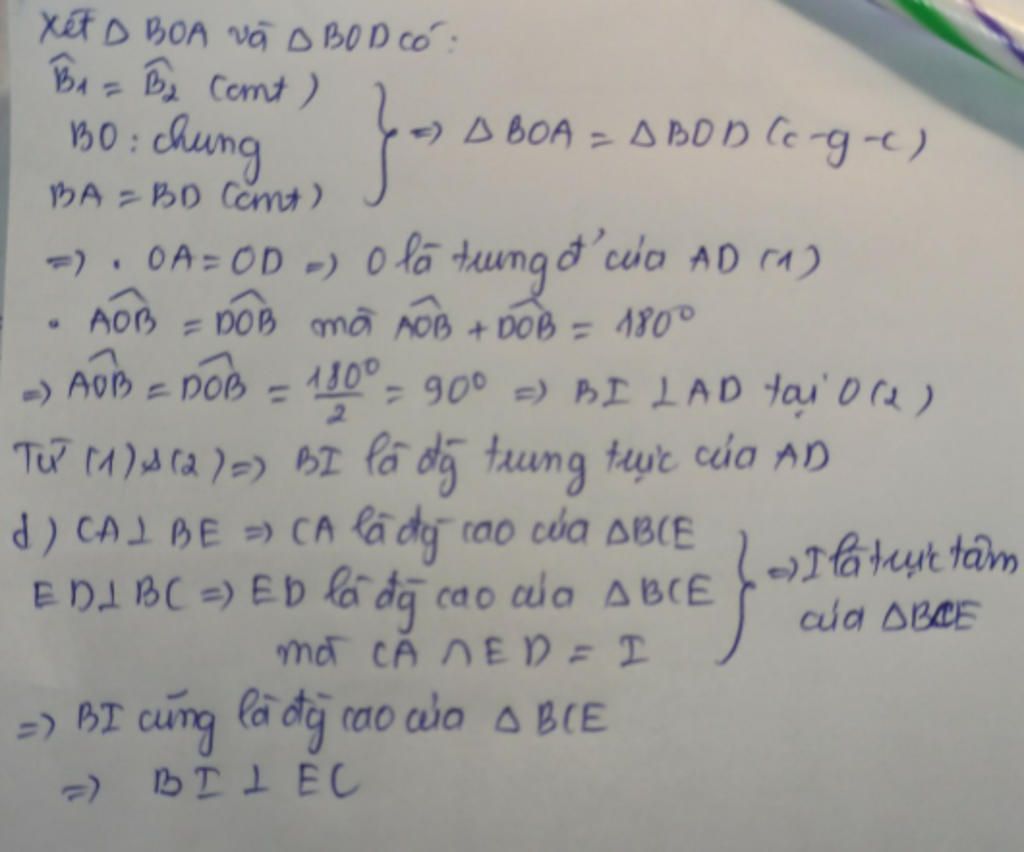 Xét Δ BOA và Δ BOD có:
B̂1 = B̂2 (cmt)
BO : chung
BA = BD (cmt)
} => Δ BOA = Δ BOD (c-g-c)
=> . OA = OD => O là trung đ' của AD (1)
. AOB̂ = DOB̂ mà AOB̂ + DOB̂ = 180°
=> AOB̂ = DOB̂ = 180°/2 = 90° => BI ⊥ AD tại O (2)
Từ (1) & (2) => BI là đg̃ trung trực của AD
d) CA ⊥ BE => CA là đg̃ cao của ΔBCE
ED ⊥ BC => ED là đg̃ cao của ΔBCE
mà CA ∩ ED = I
} => I là trực tâm
của ΔBCE
=> BI cũng là đg̃ cao của Δ BCE
=> BI ⊥ EC